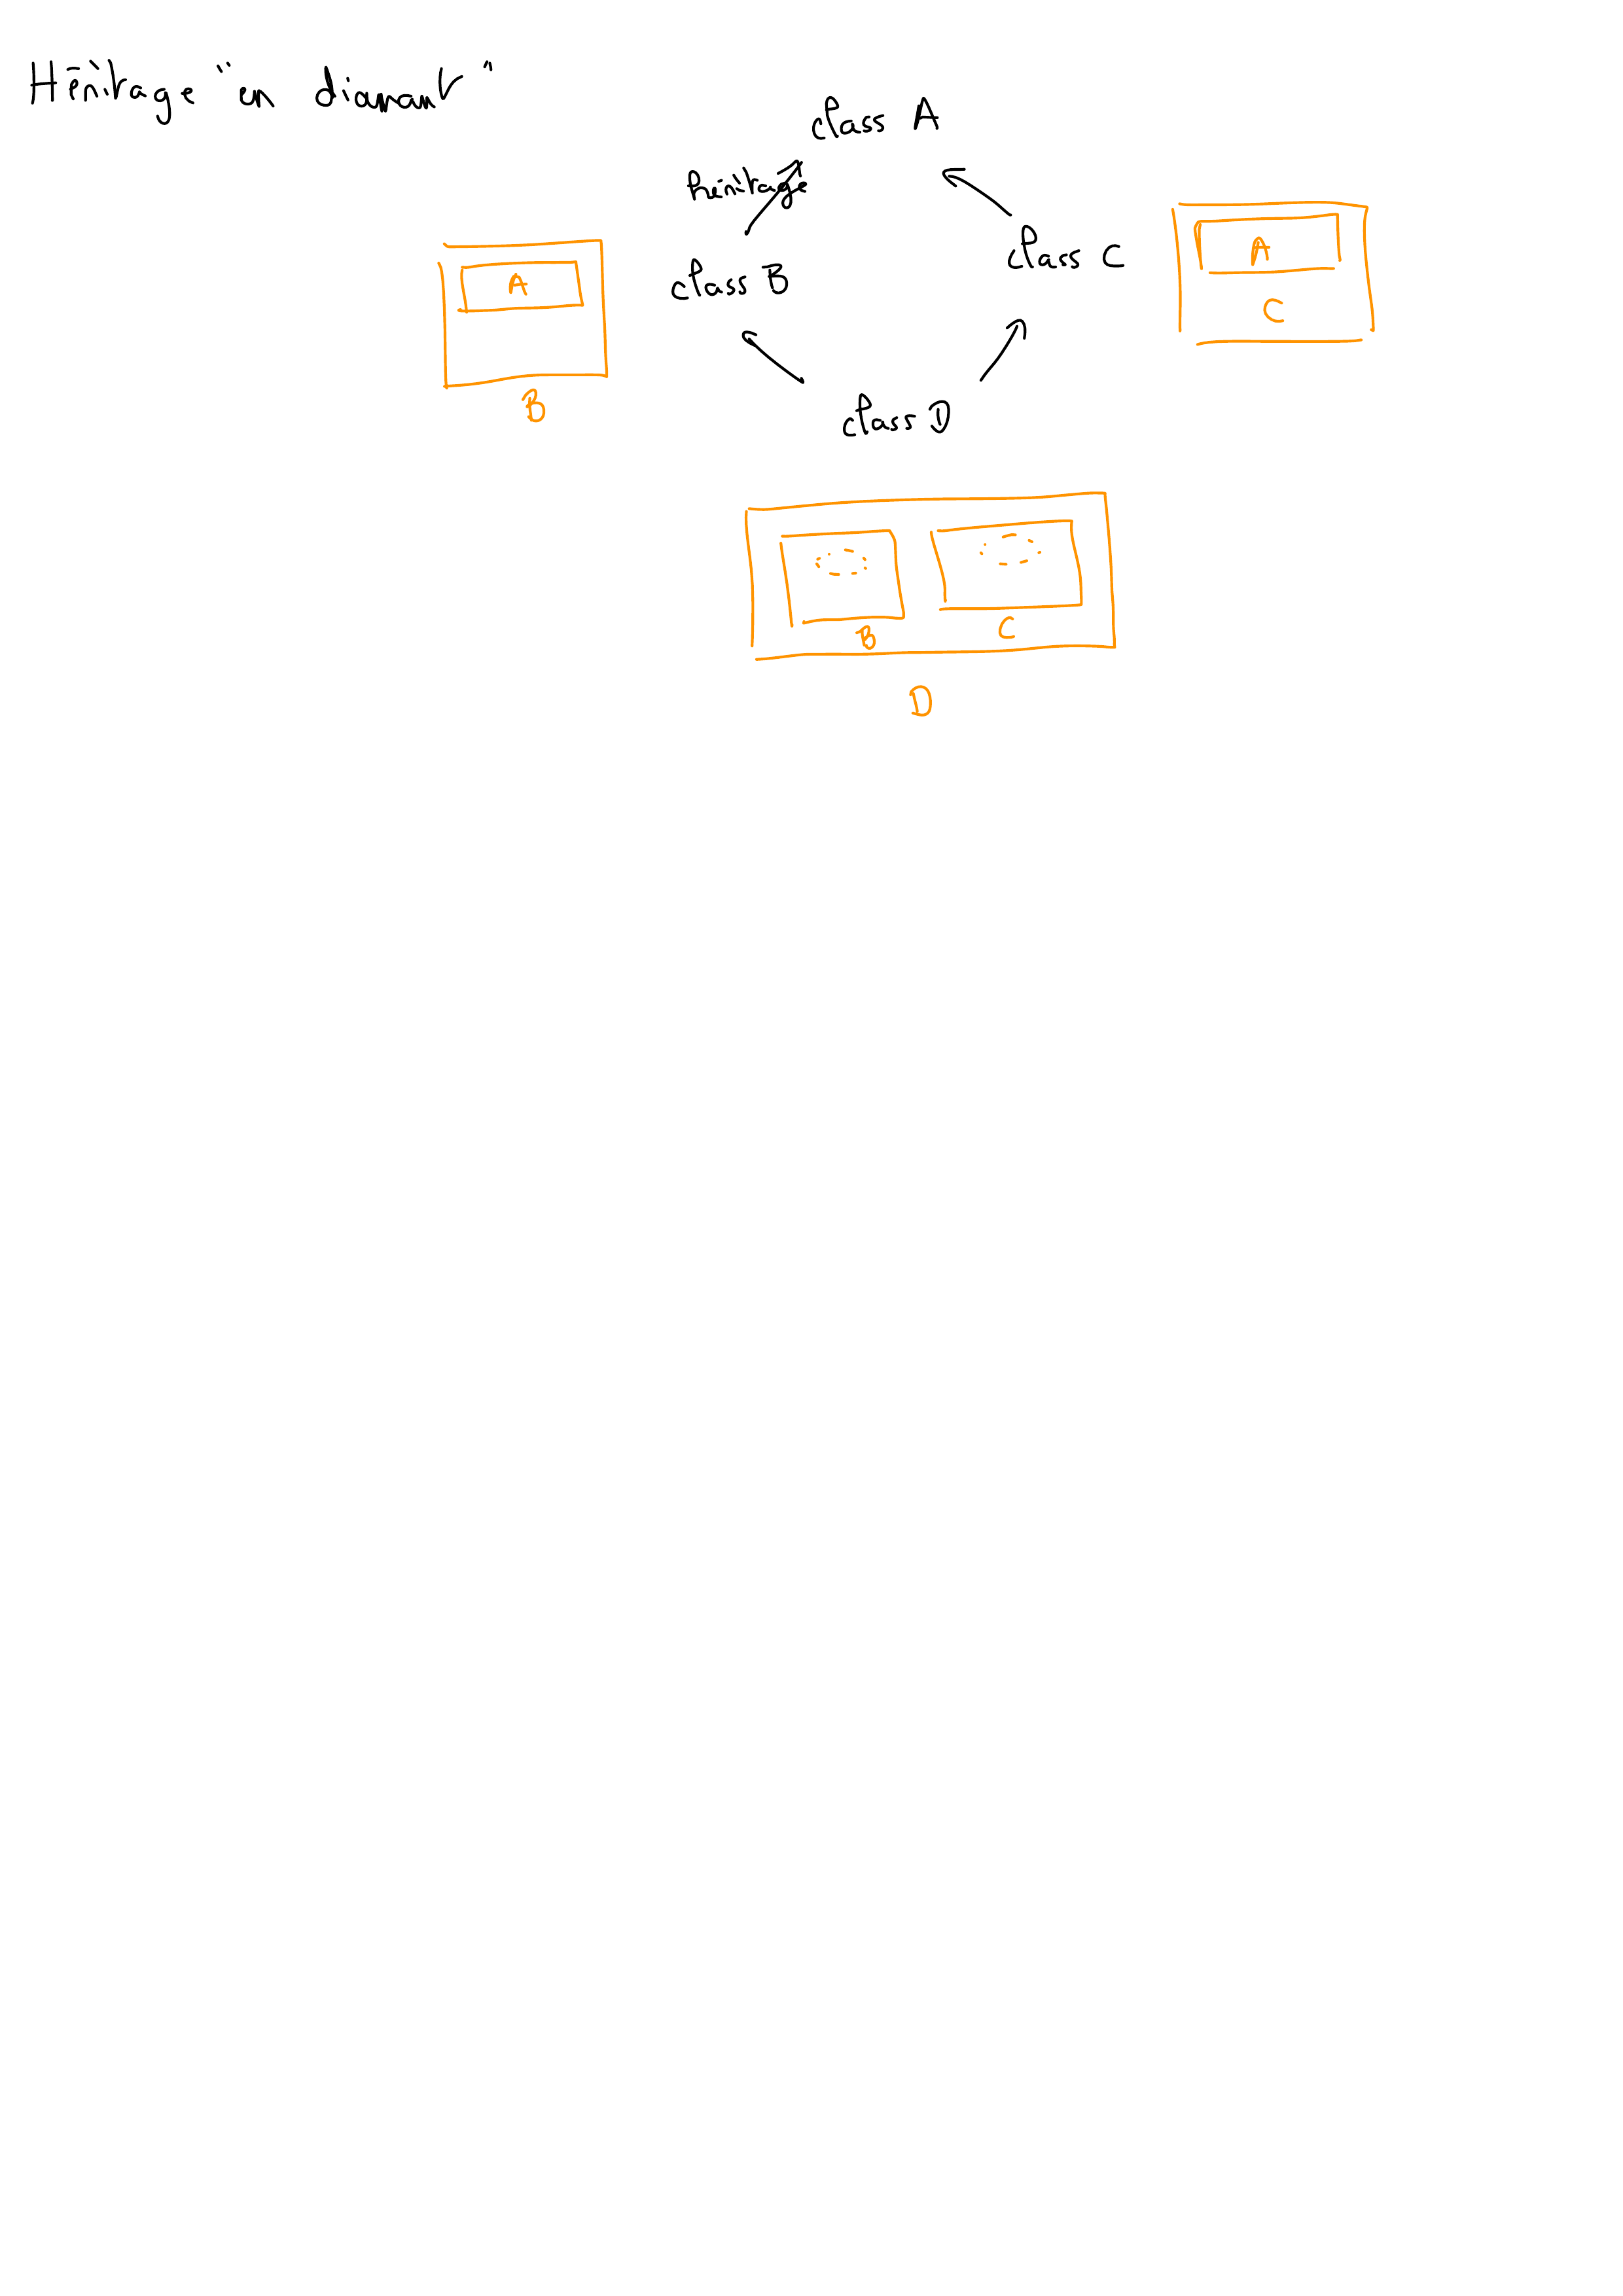 Héritage "en diamant"
class A
héritage
class B
class C
A
B
A
C
class D
B
C
D